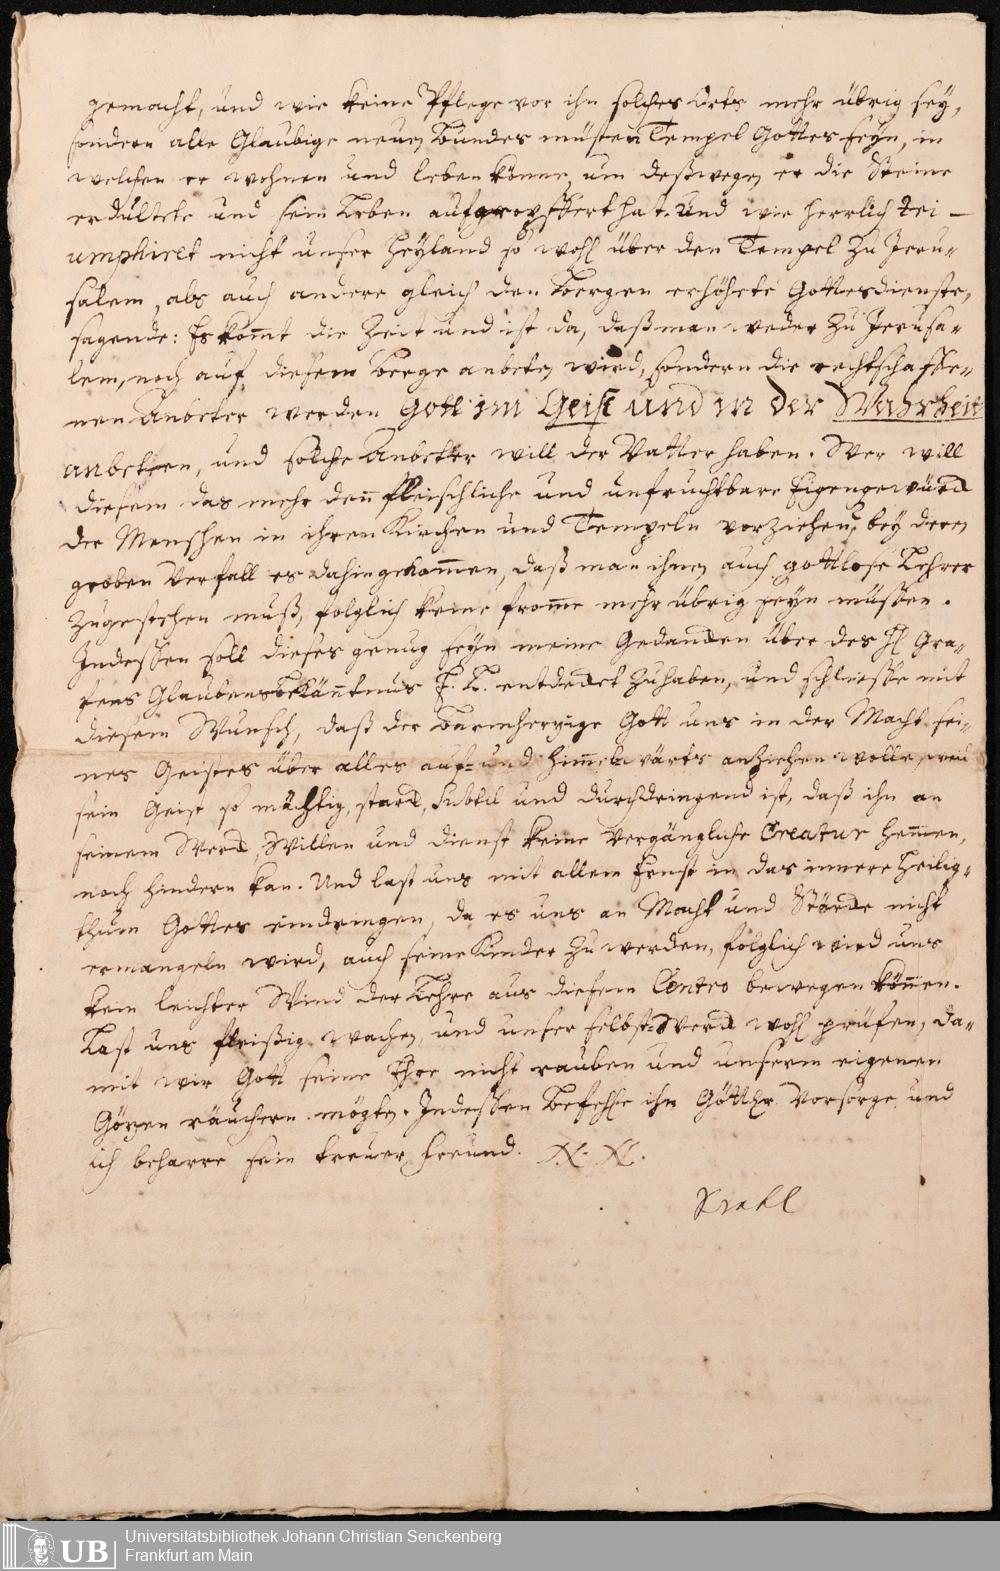 gemacht, und wie keine Pflege vor ihn solches Orts mehr übrig sey,
sondern alle Glaubige neuen Bundes müsten Tempel Gottes seyn, in
welchen er wohnen und leben könne, um deßwegen er die Steine
erdultete und sein Leben aufgeopffert hat. Und wie herrlich tri-
umphiret nicht unser Heyland so wohl über den Tempel zu Jeru-
salem, als auch andere gleich den Bergen erhöhete Gottesdienste,
sagende: Es kom̅t die Zeit und ist da, daß man weder zu Jerusa-
lem, noch auf diesem Berge anbeten wird, sondern die rechtschaffe-
nen Anbeter werden Gott im Geist und in der Wahrheit
anbetten, und solche Anbetter will der Vatter haben. Wer will
diesem das mehr den̅ fleischliche und unfruchtbare Eigengewürck
der Menschen in ihren Kirchen und Tempeln vorziehen? bey deren
groben Verfall es dahin gekom̅en, daß man ihnen auch gottlose Lehrer
zugestehen muß, folglich keine from̅e mehr übrig seyn müssen.
Indessen soll dieses genug seyn meine Gedancken über des H. Gra-
fens Glaubensbekän̅tnus E. L. entdecket zu haben, und schliesse mit
diesem Wunsch, daß der barmherzige Gott uns in der Macht sei-
nes Geistes über alles auf- und him̅elwärts anziehen wolle, weil
sein Geist so mächtig, starck, subtil und durchdringend ist, daß ihn an
seinem Werck, Willen und dienst keine vergängliche Creatur hem̅en,
noch hindern kan. Und last uns mit allem Ernst in das innere Heilig-
thum Gottes eindringen, da es uns an Macht und Stärcke nicht
ermangeln wird, auch seine Kinder zu werden, folglich wird uns
kein leichter Wind der Lehre aus diesem Centro bewegen kön̅en.
Last uns fleißig wachen, und unser selbst-Werck wohl prüfen, da-
mit wir Gott seine Ehre nicht rauben und unserm eigenen
Götzen räuchern mögten. Indessen befehle ihn Göttlr. Vorsorge und
ich beharre sein treuer Freund. N. N.
Strahl
Universitätsbibliothek Johann Christian Senckenberg
Frankfurt am Main
UB